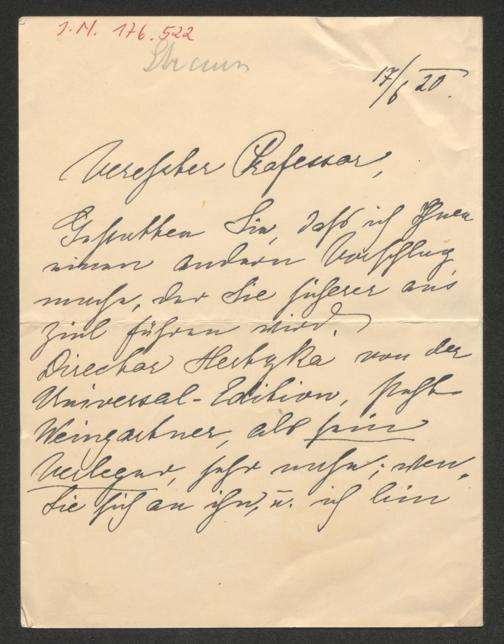 I. N. 176.522
Strauss
17/6 20.
Verehrter Professor,
Gestatten Sie, daß ich Ihnen
einen andern Vorschlag
mache, der Sie sicherer ans
Ziel führen wird.
Director Hertzka von der
Universal-Edition, steht
Weingartner, als sein
Verleger, sehr nahe; wen=
Sie sich an ihn, u. ich bin